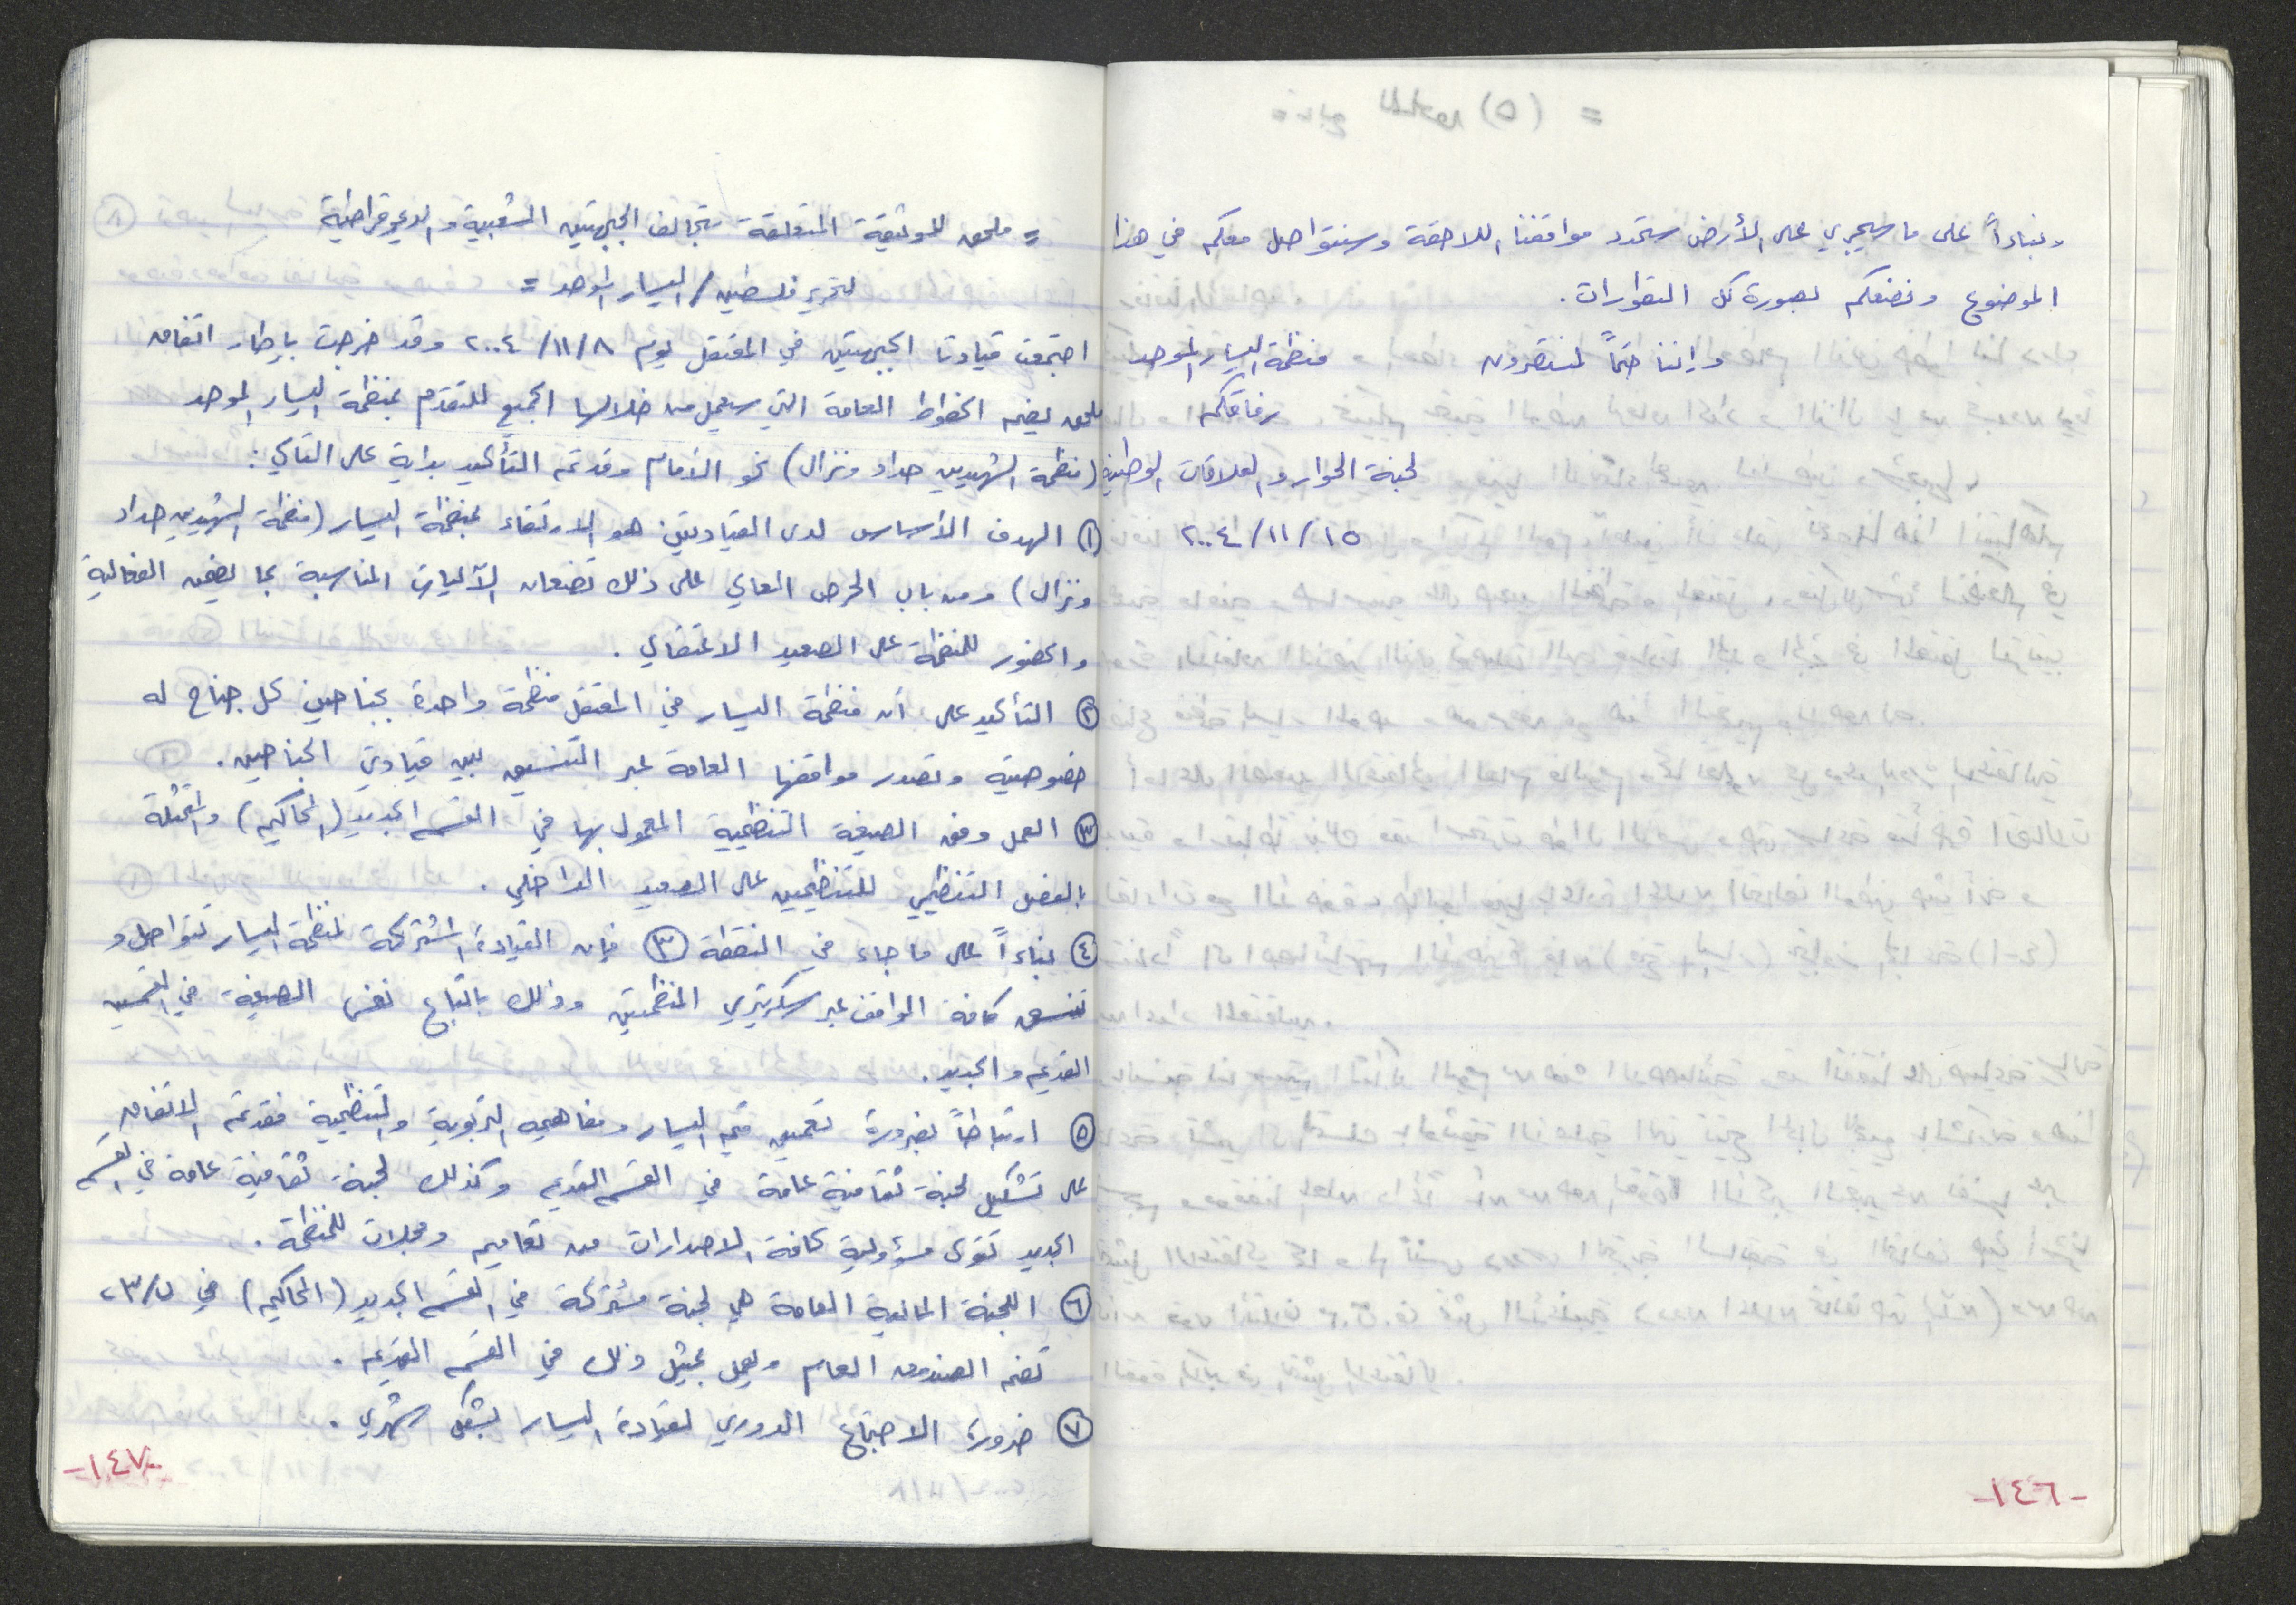 وبناءاً على ما سيجري على الأرض ستحدد مواقفنا اللاحقة وسنتواصل معكم في هذا
الموضوع ونضعكم بصورة كل التطورات.
وإننا حتماً لمنتصرون
منظمة اليسار الموحد
رفاقكم
لجنة الحوار والعلاقات الوطنية
٢٠٠٤/١١/١٥
-١٤٦-
= ملحق للوثيقة المتعلقة بتحالف الجبهتين الشعبية والديموقراطية
لتحرير فلسطين/اليسار الموحد =
اجتمعت قيادتا الجبهتين في المعتقل يوم ٢٠٠٤/١١/٨ وقد خرجت بإطار اتفاق
ملحق يضم الخطوط العامة التي سيعمل من خلالها الجميع للتقدم بمنظمة اليسار الموحد
(منظمة الشهيدين حداد ونزال) نحو الأمام وقد تم التأكيد بداية على التالي:
١ الهدف الأساس لدى القيادتين هو الارتقاء بمنظمة اليسار (منظمة الشهيدين حداد
ونزال) ومن باب الحرص العالي على ذلك تضعان الآليات المناسبة بما يضمن الفعالية
والحضور للمنظمة على الصعيد الاعتقالي.
٢ التأكيد على أن منظمة اليسار في المعتقل منظمة واحدة بجناحين كل جناح له
خصوصيته وتصدر مواقفها العامة عبر التنسيق بين قيادتي الجناحين.
٣ العمل وفق الصيغة التنظيمية المعمول بها في القسم الجديد (المحاكيم) والمتمثلة
بالفصل التنظيمي للتنظيمين على الصعيد الداخلي.
٤ بناءاً على ما جاء في النقطة ٣ فإن القيادة المشتركة لمنظمة اليسار تتواصل و
تنسق كافة المواقف عبر سكرتيري المنظمتين وذلك باتباع نفس الصيغة في القسمين
القديم والجديد.
٥ ارتباطاً بضرورة تعميق قيم اليسار ومفاهيمه التربوية والتنظيمية فقد تم الاتفاق
على تشكيل لجنة ثقافية عامة في القسم القديم وكذلك لجنة ثقافية عامة في القسم
الجديد تتولى مسؤولية كافة الاصدارات من تعاميم ومجلات للمنظمة.
٦ اللجنة المالية العامة هي لجنة مشتركة في القسم الجديد (المحاكيم) في
تضم الصندوق العام ويعمل بمثيل ذلك في القسم القديم.
٧ ضرورة الاجتماع الدوري لقيادة اليسار بشكل شهري.
-١٤٧-